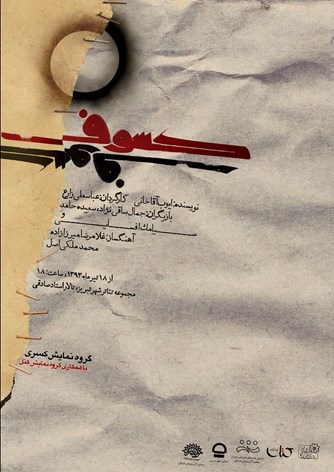 کسوف
نویسنده: ایوب آقاخانی کارگردان: عباسعلی زارع
بازیگران: جمال ساقی نژاد، سعیده حامد
و
سیامک افسایی
آهنگساز: غلامرضا میرزازاده
محمد ملکی اصل
از ۱۸ تیر ماه ۱۳۹۳، ساعت: ۱۸
مجموعه تئاتر شهر تبریز، تالار استاد صادقی
گروه نمایش کسری
با همکاری گروه نمایش کتل